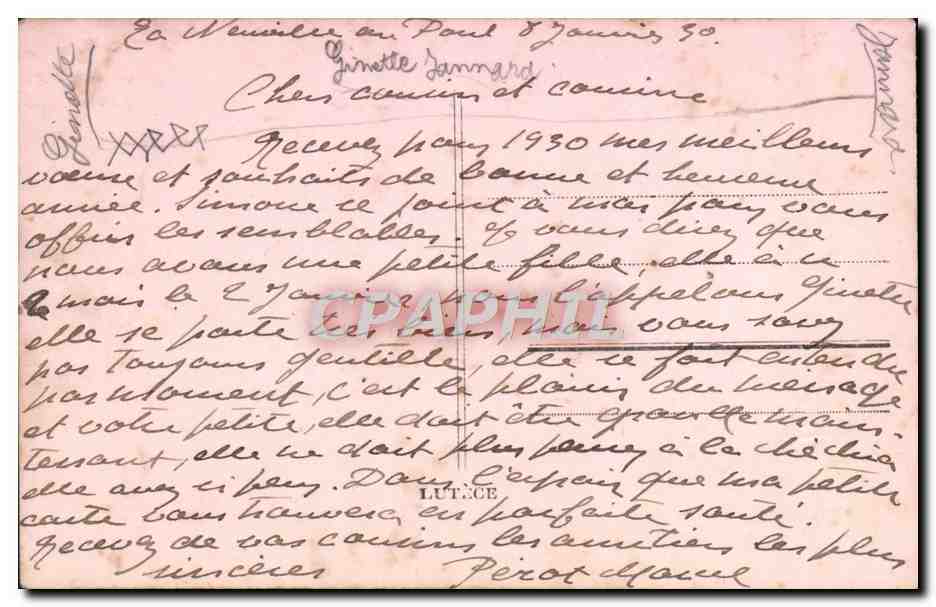 La Neuville au Pont 8 Janvier 30.
Ginette Jannard
Ginette
Jannard
Chers cousin et cousine
Recevez pour 1930 mes meilleurs
voeux et souhaits de bonne et heureuse
année. Simone se joint à moi pour vous
offrir les semblables. Je vous direz que
nous avons une petite fille, elle à eu
2 mois le 2 Janvier, nous l'appelons Ginette
elle se porte très bien, mais vous savez
pas toujours gentille, elle se fait entendre
par moment, c'est le plaisir du ménage
et votre petite, elle doit être grande main-
tenant, elle ne doit plus pensez à la
elle avez si peur. Dans l'espoir que ma petite
LUTÈCE
carte vous trouvera en parfaite santé.
Recevez de vos cousins les amitiers les plus
sincères Perot Marcel
CPAPHIL